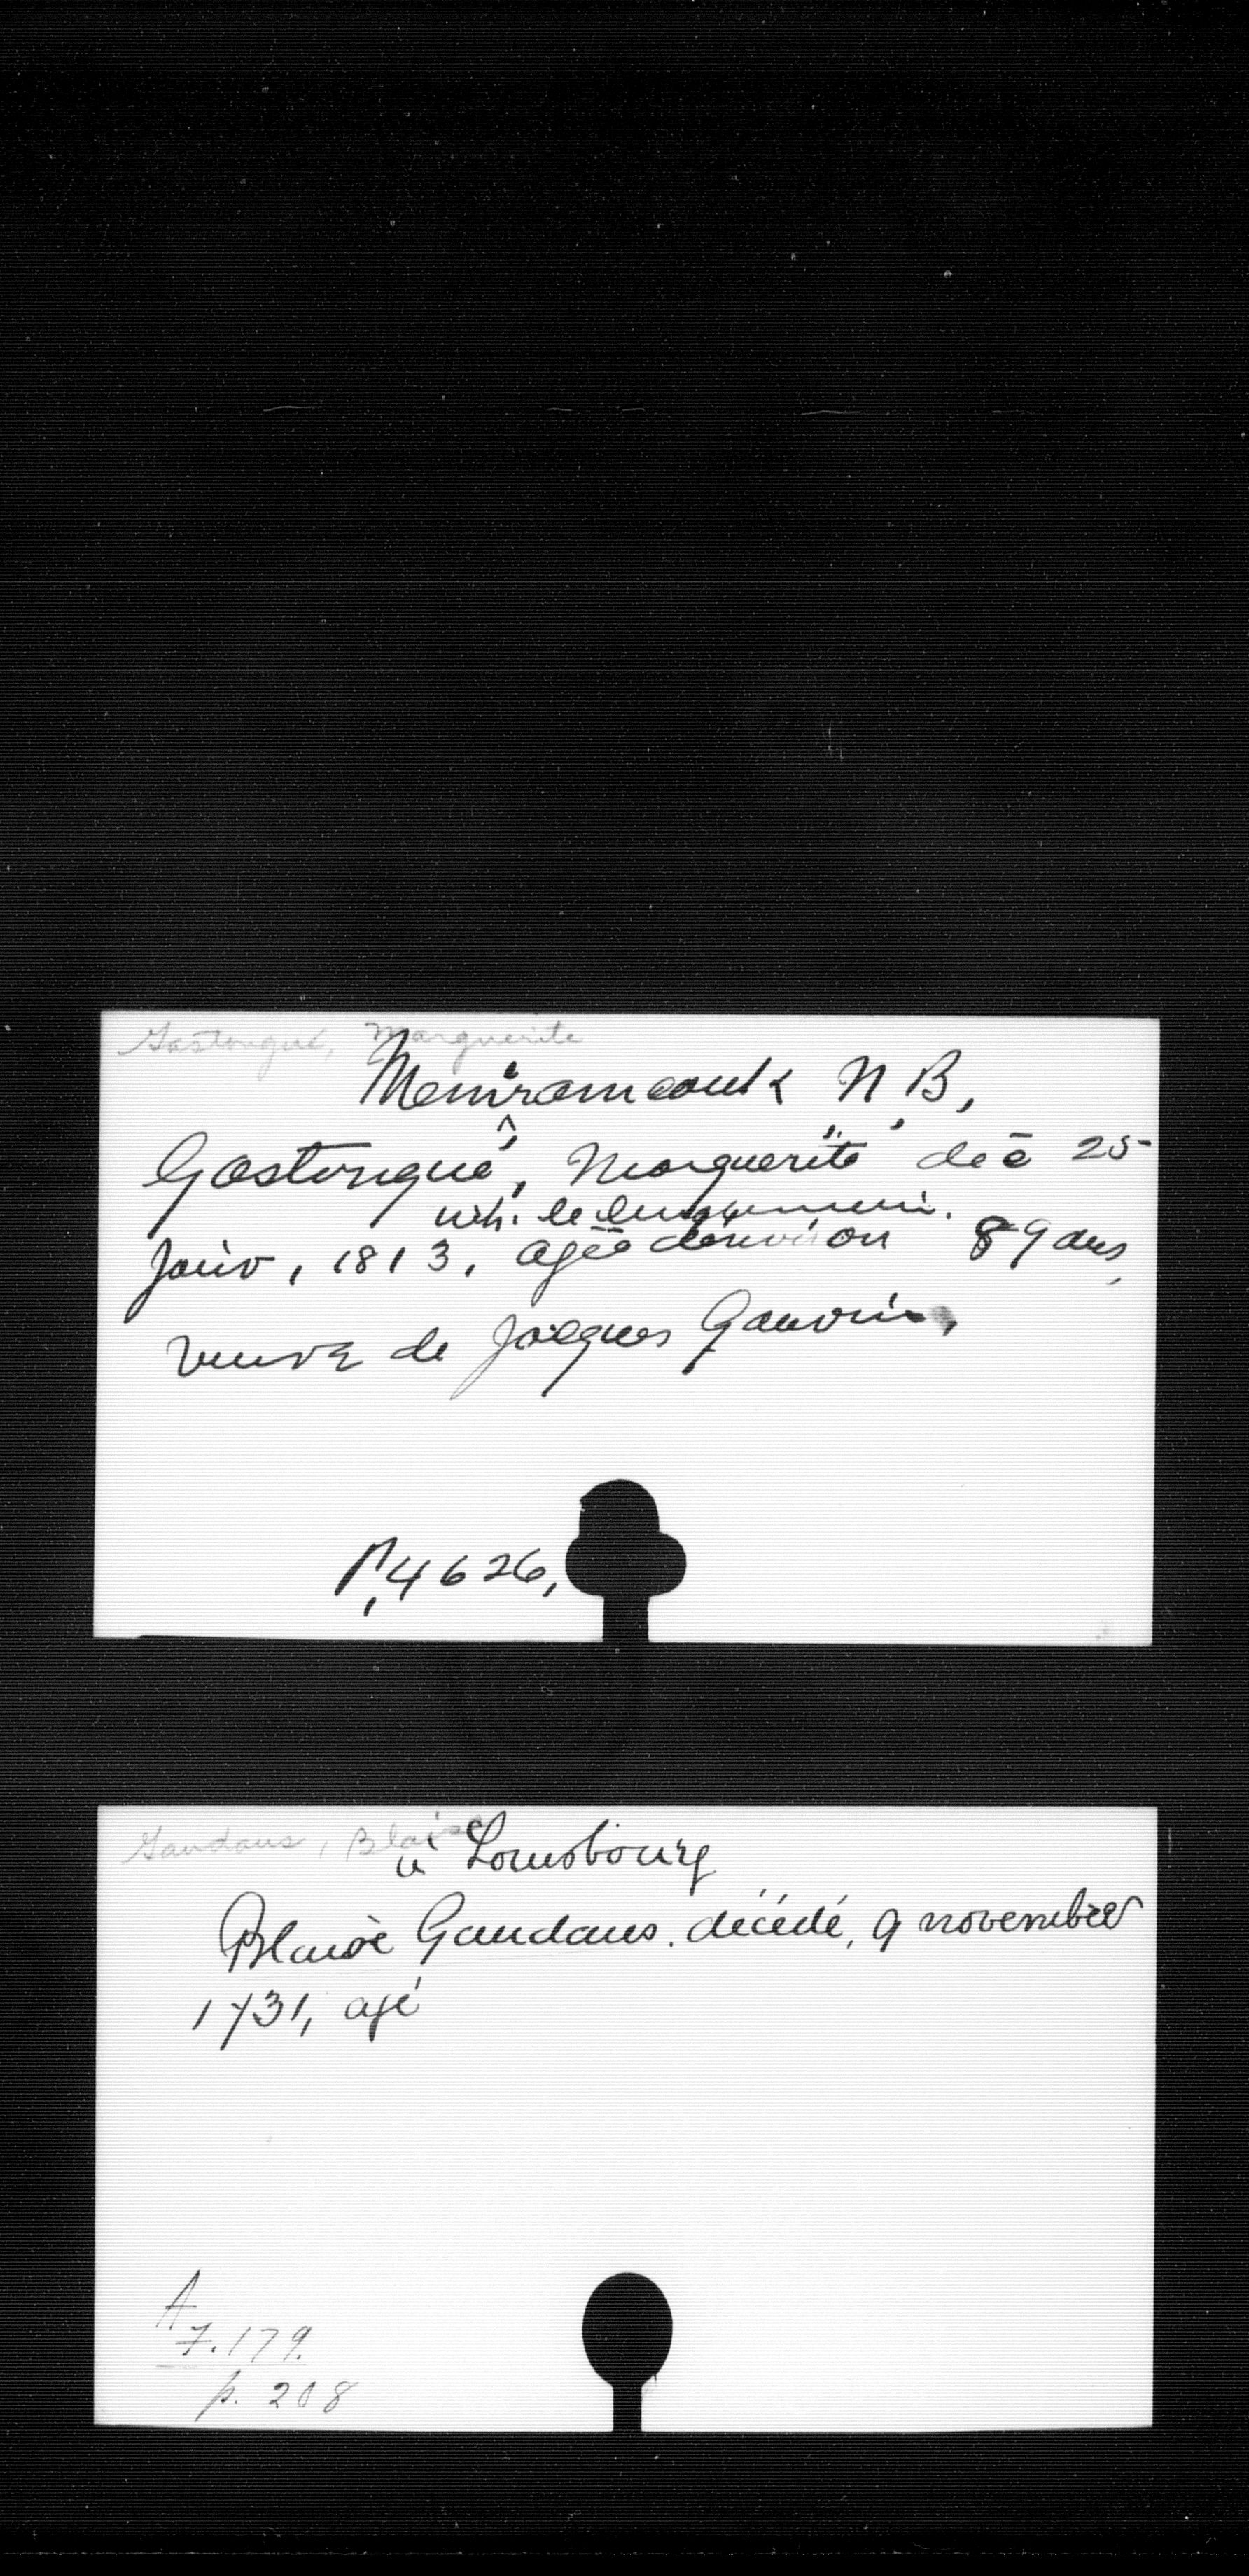 Gastongué, Marguerite
Memramcouk N, B,
Gastongué, Marguerite déc 25
inh. le lendemain.
Janv, 1813, agée d'environ 89 ans,
veuve de Jacques Gauvin,
P, 4626,
Gaudaus, Blaise
à Louisbourg
Blaise Gaudaus, décédé, 9 novembre
1731, agé
A
7.179.
p. 208